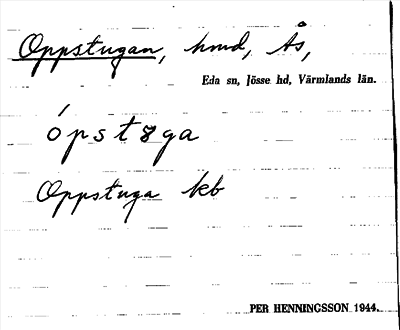 Oppstugan, hmd, Ås,
Eda sn, Jösse hd, Värmlands län.
ópstꝋga
Oppstuga kb
PER HENNINGSSON 1944.